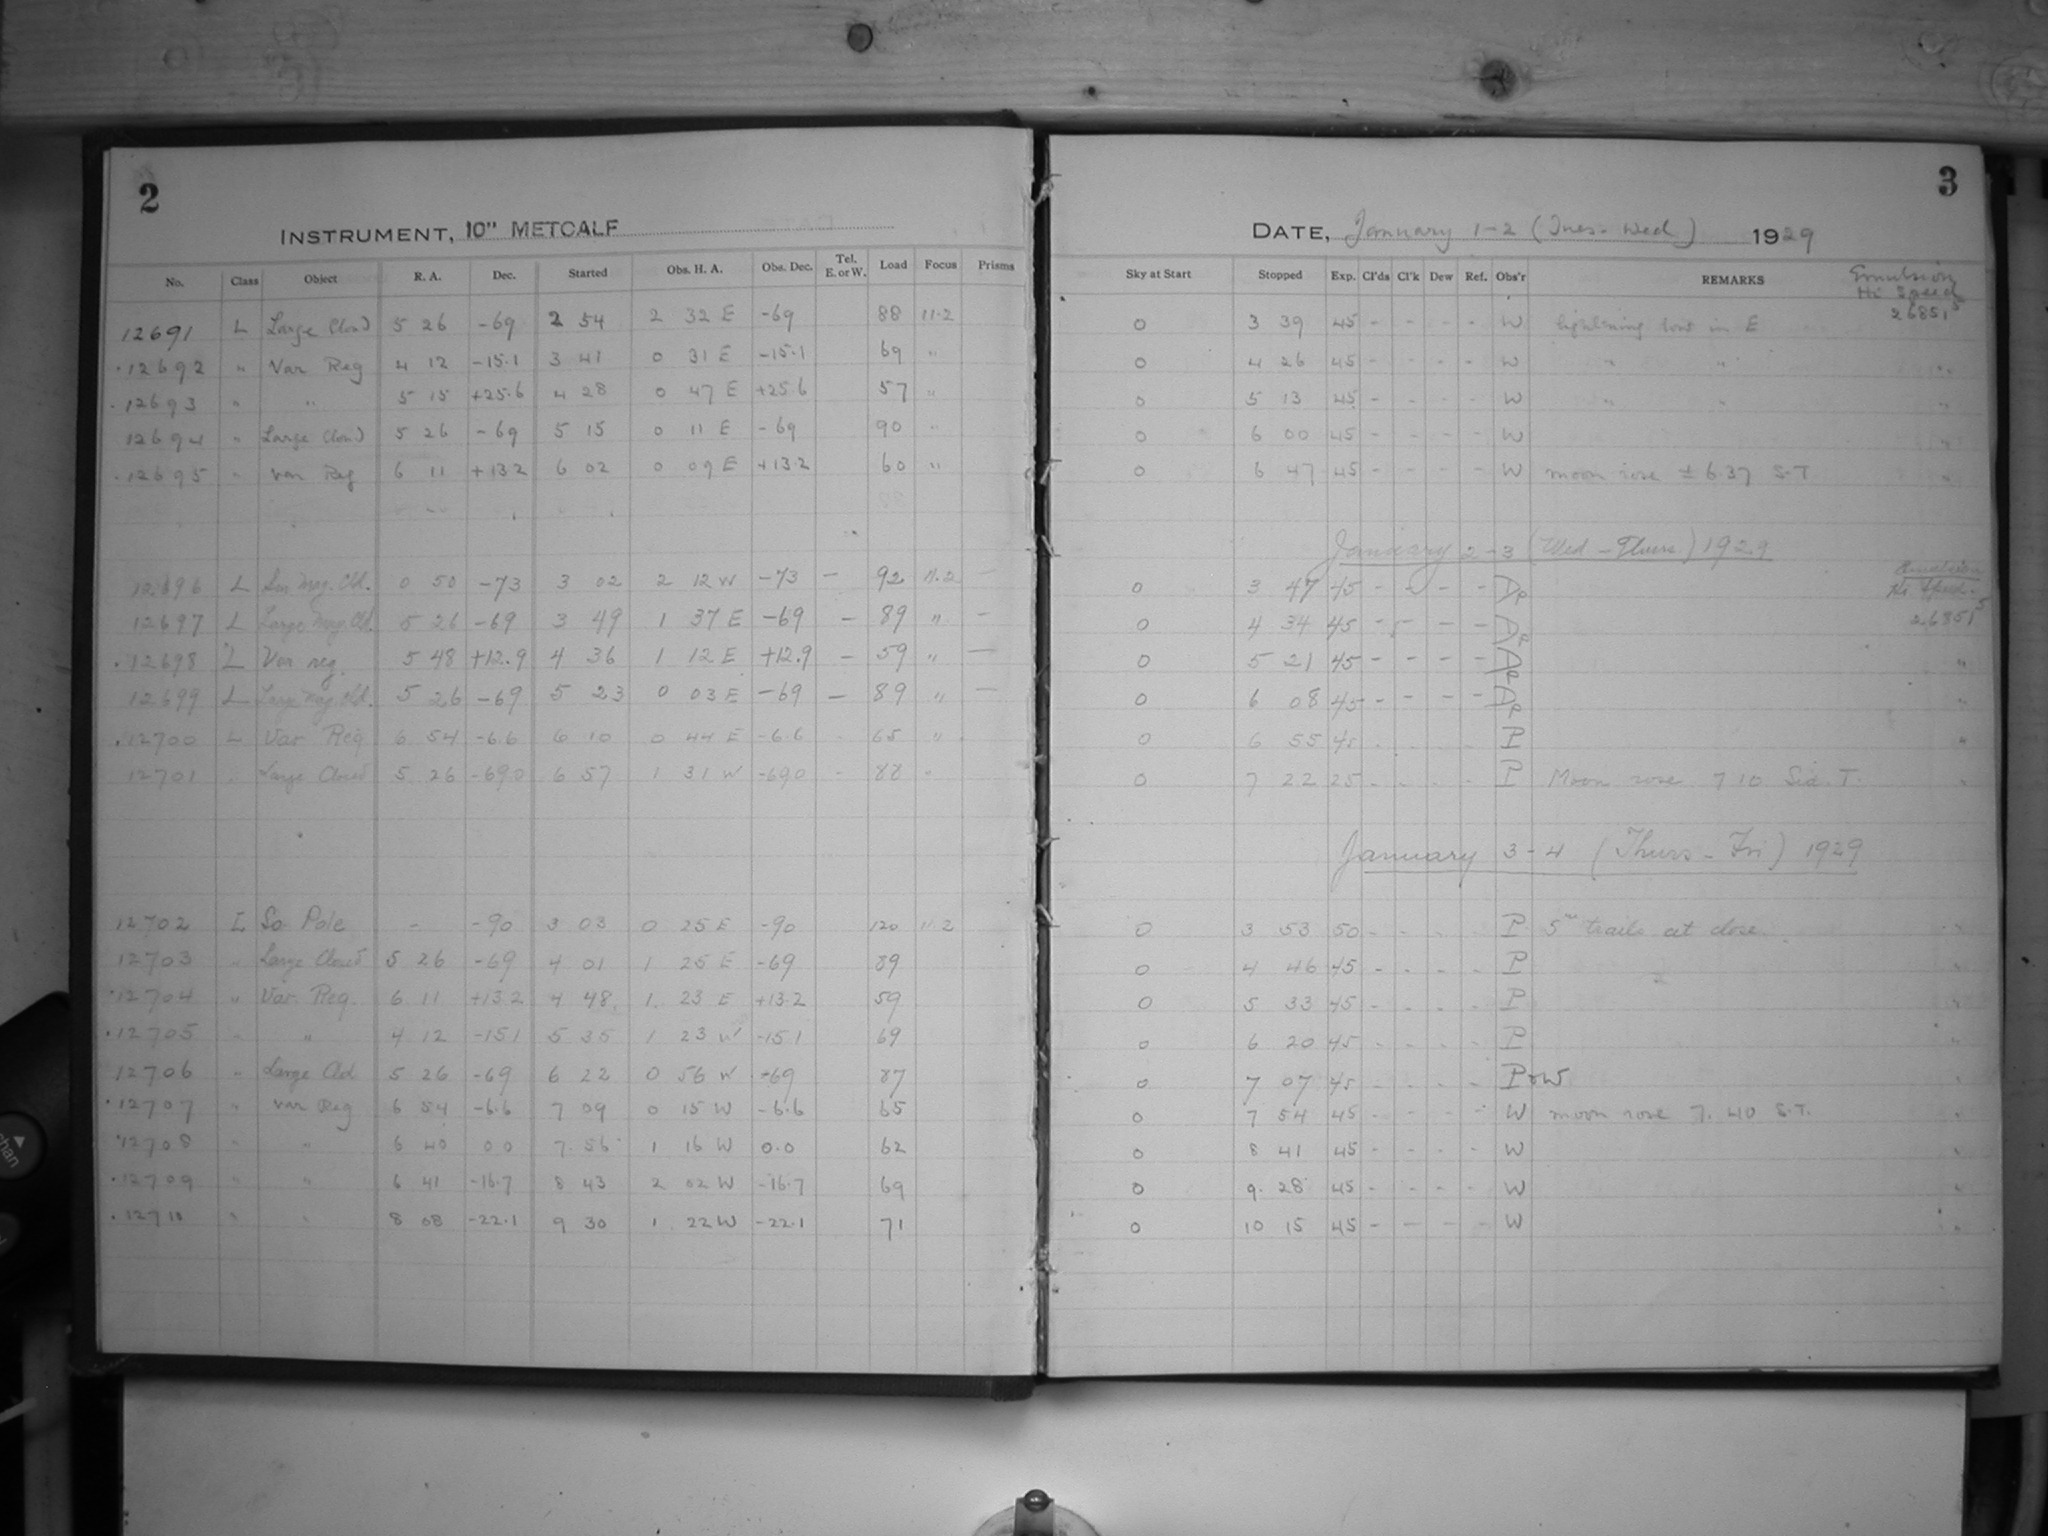 2
INSTRUMENT, 10" METCALF
No. Class Object R. A. Dec. Started Obs. H. A. Obs. Dec. Tel. E. or W. Load Focus Prisms
12691 L Large Cloud 5 26 -69 2 54 2 32 E -69 88 11.2
12692 " Var Reg 4 12 -15.1 3 41 0 31 E -15.1 69 "
12693 " " 5 15 +25.6 4 28 0 47 E +25.6 57 "
12694 " Large Cloud 5 26 -69 5 15 0 11 E -69 90 "
12695 " Var Reg 6 11 +13.2 6 02 0 09 E +13.2 60 "
12696 L Sm Mag. Cld. 0 50 -73 3 02 2 12 W -73 - 92 11.2 -
12697 L Large Mag. Cld. 5 26 -69 3 49 1 37 E -69 - 89 " -
12698 L Var reg. 5 48 +12.9 4 36 1 12 E +12.9 - 59 " -
12699 L Large Mag. Cld. 5 26 -69 5 23 0 03 E -69 - 89 " -
12700 L Var Reg 6 54 -6.6 6 10 0 44 E -6.6 - 65 "
12701 " Large Cloud 5 26 -69.0 6 57 1 31 W -69.0 - 88 "
12702 L So. Pole - -90 3 03 0 25 E -90 120 11.2
12703 " Large Cloud 5 26 -69 4 01 1 25 E -69 89
12704 " Var. Reg. 6 11 +13.2 4 48 1 23 E +13.2 59
12705 " " 4 12 -15.1 5 35 1 23 W -15.1 69
12706 " Large Cld 5 26 -69 6 22 0 56 W -69 87
12707 " Var Reg 6 54 -6.6 7 09 0 15 W -6.6 65
12708 " " 6 40 0 0 7 56 1 16 W 0.0 62
12709 " " 6 41 -16.7 8 43 2 02 W -16.7 69
12710 " " 8 08 -22.1 9 30 1 22 W -22.1 71
3
DATE, January 1-2 (Tues-Wed) 1929
Sky at Start Stopped Exp. Cl'ds Cl'k Dew Ref. Obs'r REMARKS Emulsion
Hi Speed
26851⁵
0 3 39 45 - - - - W lightening low in E
0 4 26 45 - - - - W " " "
0 5 13 45 - - - - W " " "
0 6 00 45 - - - - W "
0 6 47 45 - - - - W moon rose ± 6.37 S.T. "
January 2-3 (Wed - Thurs.) 1929
Emulsion
Hi Speed
26851⁵
0 3 47 45 - - - - Dp
0 4 34 45 - - - - Dp
0 5 21 45 - - - - Dp "
0 6 08 45 - - - - Dp "
0 6 55 45 - - - - P "
0 7 22 25 - - - - P Moon rose 7 10 Sid. T. "
January 3-4 (Thurs - Fri) 1929
0 3 53 50 - - - - P 5m trails at close. "
0 4 46 45 - - - - P
0 5 33 45 - - - - P "
0 6 20 45 - - - - P "
0 7 07 45 - - - - P & W "
0 7 54 45 - - - - W moon rose 7.40 S.T. "
0 8 41 45 - - - - W "
0 9 28 45 - - - - W "
0 10 15 45 - - - - W "